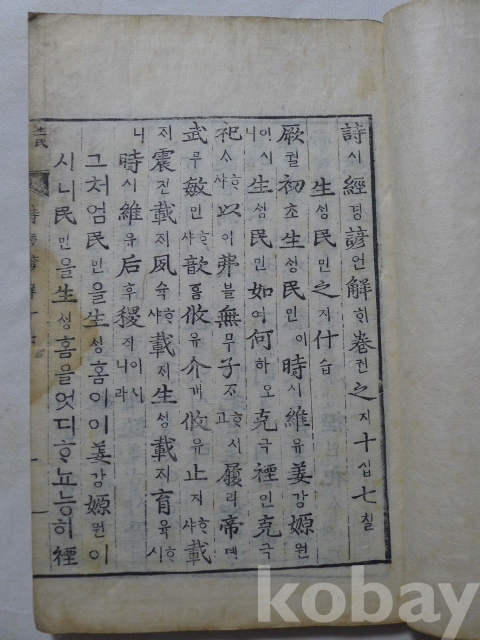 詩시經경諺언解ᄒᆡ卷권之지十십七칠
生ᄉᆡᆼ民민之지什습
厥궐初초生ᄉᆡᆼ民민이時시維유姜강嫄원
이시니生ᄉᆡᆼ民민如여何하오克극禋인克극
祀ᄉᆞᄒᆞ샤以이弗블無무子ᄌᆞᄒᆞ시고履리帝뎨
武무敏민ᄒᆞ샤歆흠攸유介개攸유止지ᄒᆞ샤載
ᄌᆡ震진載ᄌᆡ夙슉ᄒᆞ샤載ᄌᆡ生ᄉᆡᆼ載ᄌᆡ育육ᄒᆞ시
니時시維유后후稷직이시니라
그처엄民민을生ᄉᆡᆼ홈이이姜강嫄원이
시니民민을生ᄉᆡᆼ홈을엇디ᄒᆞ뇨능히禋
kobay